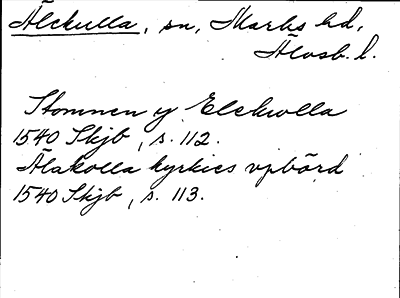 Älekulla, sn, Marks hd,
Älvsb. l.
Stomnen y Elekwlla
1540 Skjb, s. 112.
Älakolla kyrkies vpbörd
1540 Skjb, s. 113.